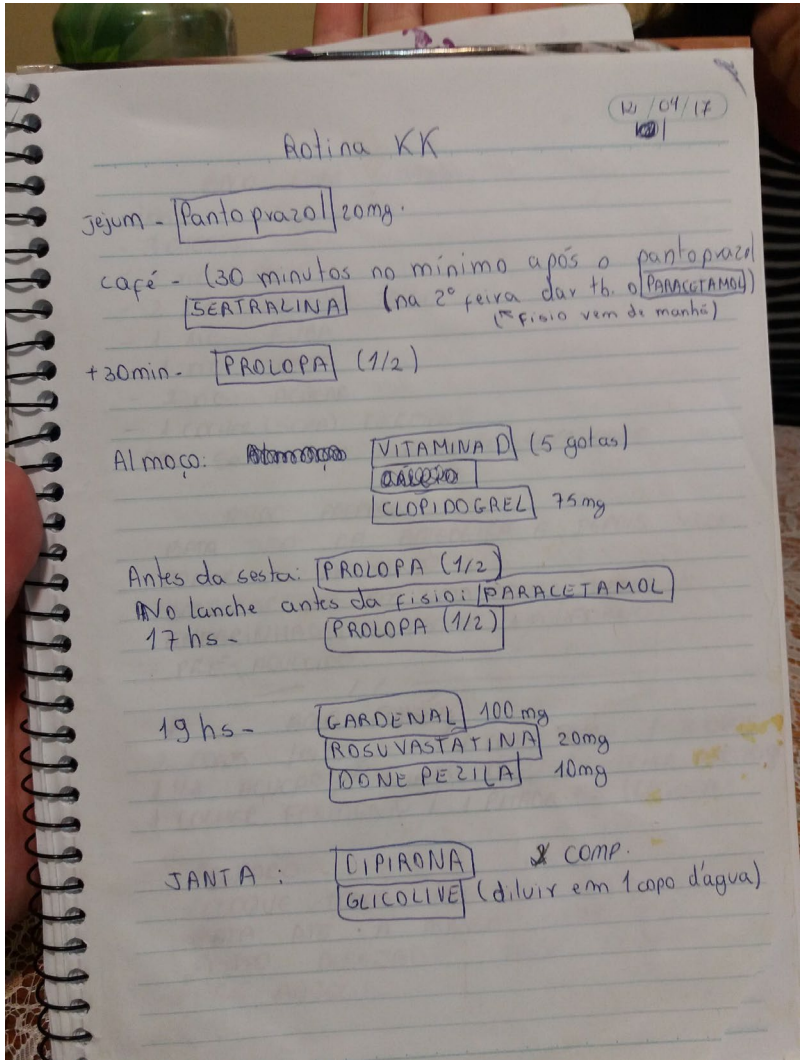 12/04/17
Rotina KK
Jejum - Pantoprazol 20mg.
café - (30 minutos no mínimo após o pantoprazol
SERTRALINA (na 2º feira dar tb. o PARACETAMOL)
(fisio vem de manhã)
+30min - PROLOPA (1/2)
Almoço: VITAMINA D (5 gotas)
CLOPIDOGREL 75mg
Antes da sesta: PROLOPA (1/2)
No lanche antes da fisio: PARACETAMOL
17hs - PROLOPA (1/2)
19hs - GARDENAL 100mg
ROSUVASTATINA 20mg
DONEPEZILA 10mg
JANTA: DIPIRONA comp.
GLICOLIVE (diluir em 1 copo d'água)